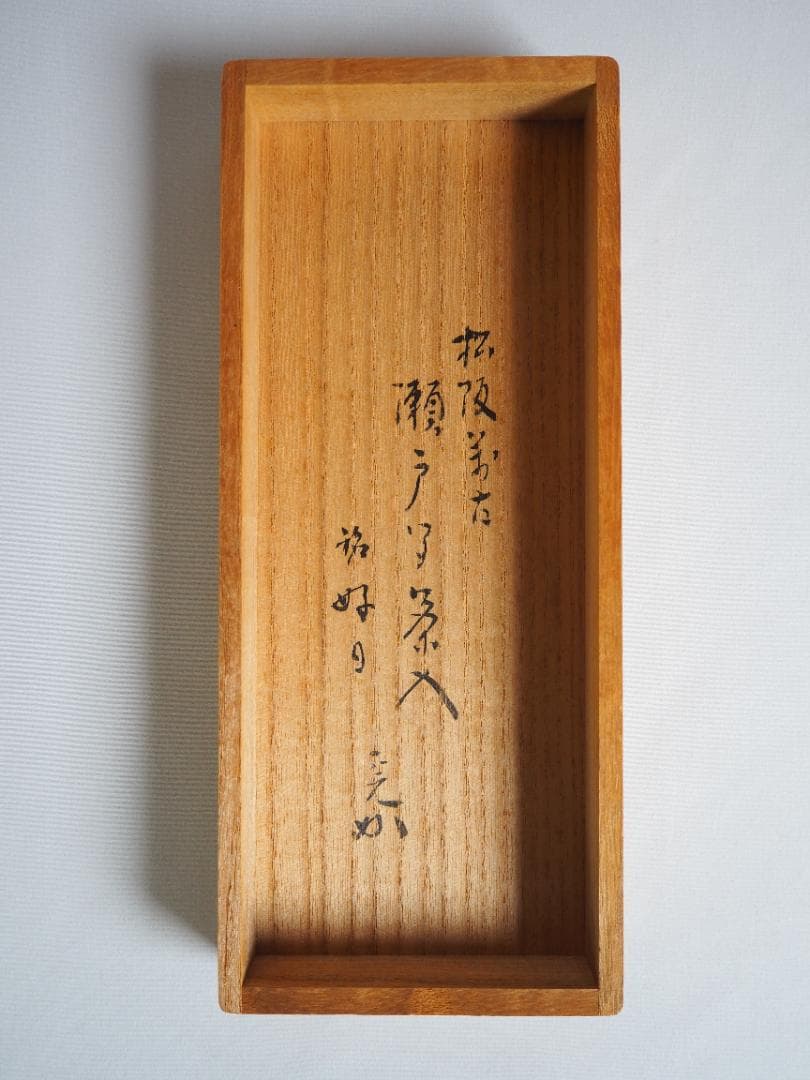 松阪萬古
瀬戸写茶入
銘好日